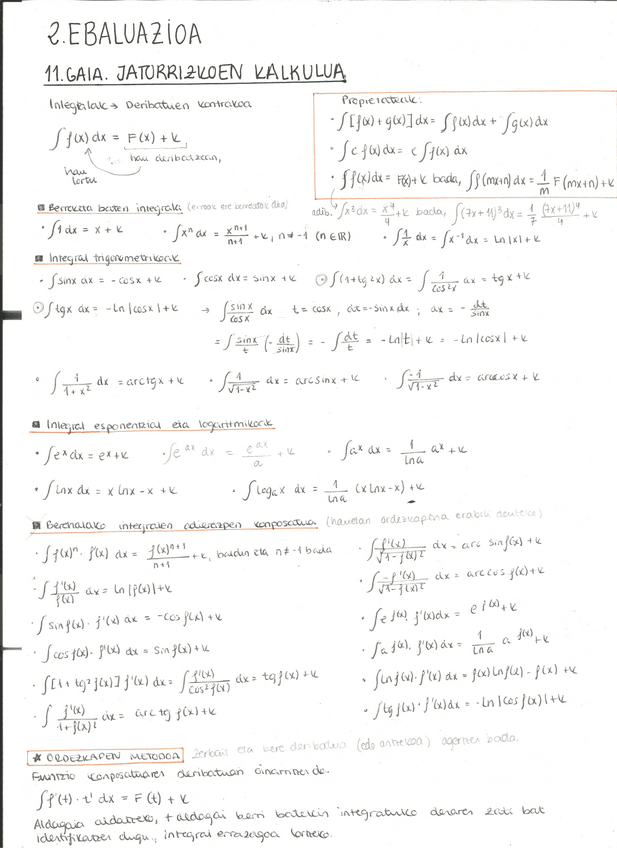 2.EBALUAZIOA
11.GAIA. JATORRIZKOEN KALKULUA
Integralak → Deribatuen kontrakoa
∫f(x)dx = F(x) + k
hau deribatzean,
hau lortu
Propietateak:
· ∫[f(x)+g(x)]dx = ∫f(x)dx + ∫g(x)dx
· ∫c f(x)dx = c ∫f(x)dx
· ∫f(x)dx = F(x)+k bada, ∫f(mx+n)dx = 1/m F(mx+n)+k
adib. ∫x³dx = x⁴/4 + k bada, ∫(7x+11)³dx = 1/7 (7x+11)⁴/4 + k
Berreketa baten integrala (erroak ere berreketak dira)
· ∫1 dx = x + k
· ∫xⁿ dx = xⁿ⁺¹/n+1 + k, n≠-1 (n∈ℝ)
· ∫1/x dx = ∫x⁻¹dx = Ln|x| + k
Integral trigonometrikoak
· ∫sinx dx = -cosx + k
· ∫cosx dx = sinx + k
∫(1+tg²x) dx = ∫1/cos²x dx = tgx + k
∫tgx dx = -Ln|cosx| + k → ∫sinx/cosx dx t = cosx, dt=-sinxdx ; dx = -dt/sinx
= ∫sinx/t (-dt/sinx) = -∫dt/t = -Ln|t| + k = -Ln|cosx| + k
· ∫1/1+x² dx = arctgx + k
· ∫1/√1-x² dx = arcsinx + k
· ∫-1/√1-x² dx = arccosx + k
Integral esponentzial eta logaritmikoak
· ∫eˣdx = eˣ+k
· ∫eᵃˣ dx = eᵃˣ/a + k
· ∫aˣ dx = 1/Lna aˣ + k
· ∫Lnx dx = x Lnx - x + k
· ∫logₐx dx = 1/Lna (xLnx-x) + k
Berehalako integralen adierazpen konposatua (hauetan ordezkapena erabili daiteke)
· ∫f(x)ⁿ · f'(x) dx = f(x)ⁿ⁺¹/n+1 + k, baldin eta n≠-1 bada
· ∫f'(x)/√1-f(x)² dx = arc sinf(x) + k
· ∫f'(x)/f(x) dx = Ln|f(x)|+k
· ∫-f'(x)/√1-f(x)² dx = arccosf(x)+k
· ∫sinf(x) · f'(x) dx = -cosf(x)+k
· ∫e^f(x) · f'(x)dx = e^f(x)+k
· ∫cosf(x) · f'(x) dx = sinf(x)+k
· ∫a^f(x) · f'(x)dx = 1/Lna a^f(x)+k
· ∫[1+tg²f(x)]f'(x)dx = ∫f'(x)/cos²f(x) dx = tgf(x)+k
· ∫Lnf(x) · f'(x)dx = f(x)Lnf(x) - f(x) + k
· ∫f'(x)/1+f(x)² dx = arctgf(x)+k
· ∫tgf(x) · f'(x)dx = -Ln|cosf(x)|+k
★ ORDEZKAPEN METODOA zerbait eta bere deribatua (edo antzekoa) agertzen bada.
Funtzio konposatuaren deribatuan oinarritzen da.
∫f'(t) · t' dx = F(t) + k
Aldagaia aldatzeko, t aldagai berri batekin integratuko denaren zati bat
identifikatzen dugu, integral errazagoa lortzeko.